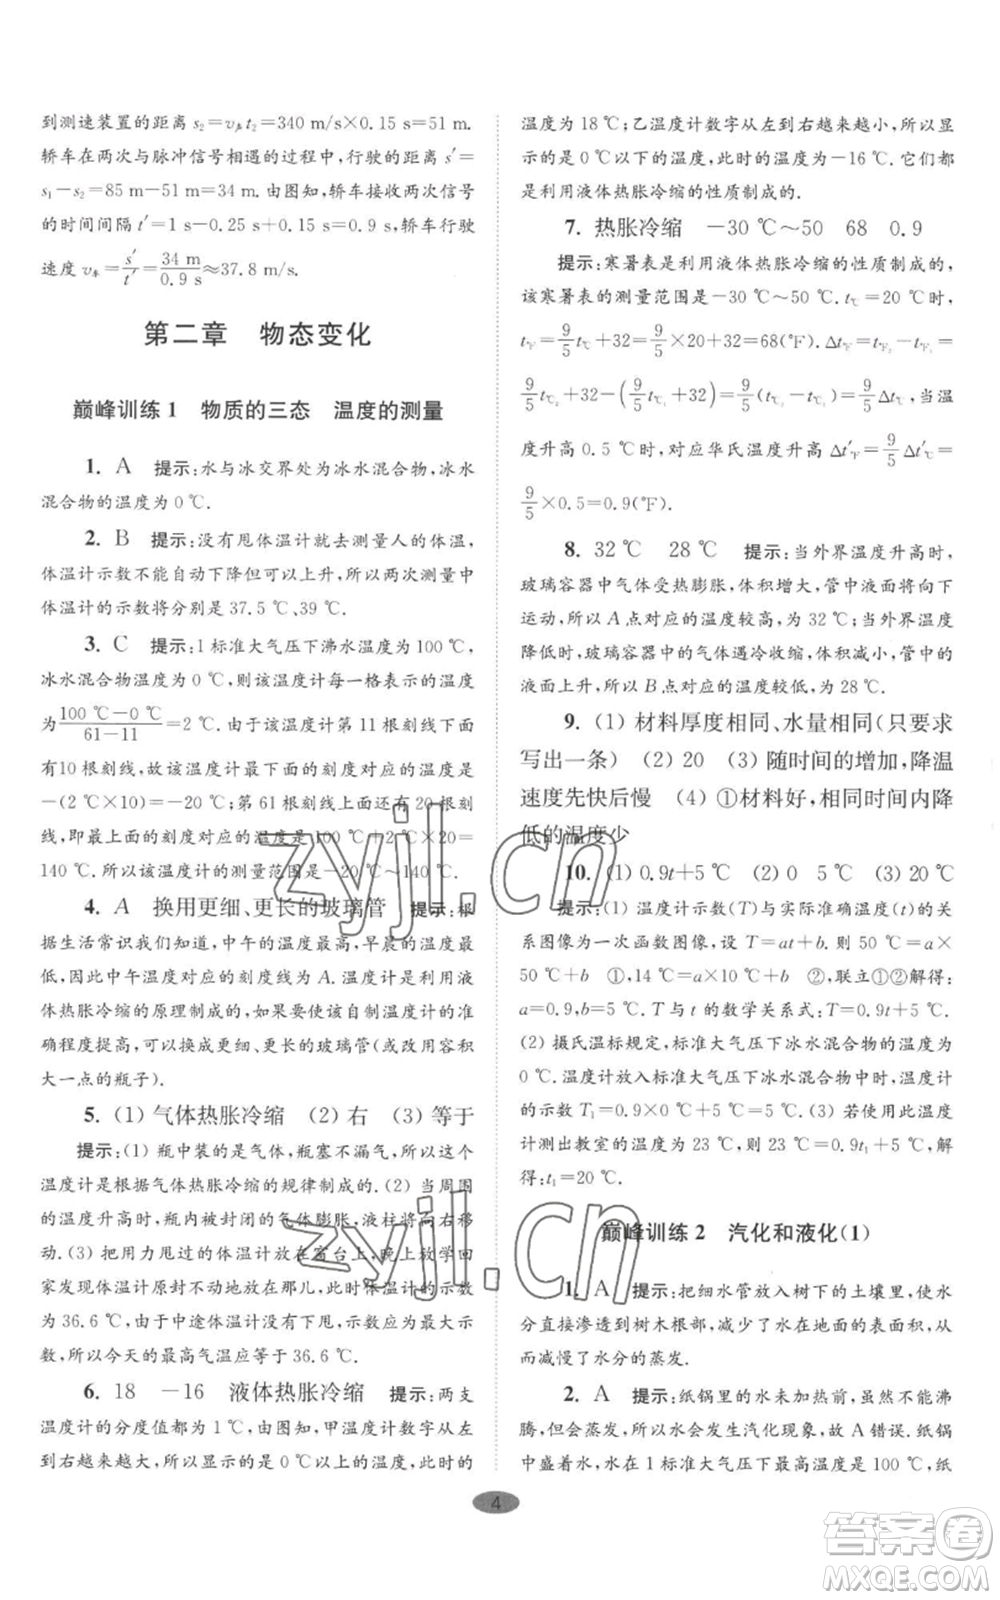 到测速装置的距离 s₂=v声t₂=340 m/s×0.15 s=51 m.
轿车在两次与脉冲信号相遇的过程中,行驶的距离 s′=
s₁−s₂=85 m−51 m=34 m. 由图知,轿车接收两次信号
的时间间隔 t′=1 s−0.25 s+0.15 s=0.9 s,轿车行驶
速度 v车=s′/t′=34 m/0.9 s≈37.8 m/s.
第二章 物态变化
巅峰训练 1 物质的三态 温度的测量
1. A 提示:水与冰交界处为冰水混合物,冰水
混合物的温度为 0 ℃.
2. B 提示:没有甩体温计就去测量人的体温,
体温计示数不能自动下降但可以上升,所以两次测量中
体温计的示数将分别是 37.5 ℃、39 ℃.
3. C 提示:1 标准大气压下沸水温度为 100 ℃,
冰水混合物温度为 0 ℃,则该温度计每一格表示的温度
为(100 ℃−0 ℃)/(61−11)=2 ℃. 由于该温度计第 11 根刻线下面
有10 根刻线,故该温度计最下面的刻度对应的温度为
−(2 ℃×10)=−20 ℃. 第 61 根刻线上面还有 20 根刻
线,即最上面的刻度对应的温度是 100 ℃+2 ℃×20=
140 ℃. 所以该温度计的测量范围是−20 ℃~140 ℃.
4. A 换用更细、更长的玻璃管 提示:根
据生活常识我们知道,中午的温度最高,早晨的温度最
低,因此中午温度对应的刻度线为 A. 温度计是利用液
体热胀冷缩的原理制成的,如果要使该自制温度计的准
确程度提高,可以换成更细、更长的玻璃管(或用容积
大一点的瓶子).
5. (1) 气体热胀冷缩 (2) 右 (3) 等于
提示:(1) 瓶中装的是气体,瓶塞不漏气,所以这个
温度计是根据气体热胀冷缩的规律制成的. (2) 当周围
的温度升高时,瓶内被封闭的气体膨胀,液柱将向右移
动. (3) 把用力甩过的体温计放在窗台上,晚上放学回
家发现体温计原封不动地放在那儿,体温计的示数
为 36.6 ℃,由于中途体温计没有下甩,示数应为最大示
数,所以今天的最高气温应等于 36.6 ℃.
6. 18 −16 液体热胀冷缩 提示:两支
温度计的分度值都为 1 ℃,由图知,甲温度计数字从左
到右越来越大,所以显示的是 0 ℃以上的温度,此时的
温度为 18 ℃;乙温度计数字从左到右越来越小,所以显
示的是 0 ℃以下的温度,此时的温度为−16 ℃. 它们都
是利用液体热胀冷缩的性质制成的.
7. 热胀冷缩 −30 ℃~50 68 0.9
提示:寒暑表是利用液体热胀冷缩的性质制成的,
该寒暑表的测量范围是−30 ℃~50 ℃. t℃=20 ℃时,
t℉=9/5 t℃+32=9/5×20+32=68(℉). Δt℉=t℉₂−t℉₁=
9/5 t℃₂+32−(9/5 t℃₁+32)=9/5(t℃₂−t℃₁)=9/5 Δt℃,当温
度升高 0.5 ℃时,对应华氏温度升高 Δt′℉=9/5 Δt′℃=
9/5×0.5=0.9(℉).
8. 32 ℃ 28 ℃ 提示:当外界温度升高时,
玻璃容器中气体受热膨胀,体积增大,管中液面将向下
运动,所以 A 点对应的温度较高,为 32 ℃;当外界温度
降低时,玻璃容器中的气体遇冷收缩,体积减小,管中的
液面上升,所以 B 点对应的温度较低,为 28 ℃.
9. (1) 材料厚度相同、水量相同(只要求
写出一条) (2) 20 (3) 随时间的增加,降温
速度先快后慢 (4) ①材料好,相同时间内降
低的温度少
10. (1) 0.9t+5 (2) 0 5 ℃ (3) 20 ℃
提示:(1) 温度计示数(T)与实际准确温度(t)的关
系图像为一次函数图像,设 T=at+b. 则 50 ℃=a×
50 ℃+b ①,14 ℃=a×10 ℃+b ②,联立①②解得:
a=0.9,b=5 ℃. T 与 t 的数学关系式:T=0.9t+5 ℃.
(2) 摄氏温标规定,标准大气压下冰水混合物的温度为
0 ℃. 温度计放入标准大气压下冰水混合物时,温度计
的示数 T₁=0.9×0 ℃+5 ℃=5 ℃. (3) 若使用此温度
计测出教室的温度为 23 ℃,则 23 ℃=0.9t₁+5 ℃,解
得:t₁=20 ℃.
巅峰训练 2 汽化和液化(1)
1. A 提示:把细水管放入树下的土壤里,使水
分直接渗透到树木根部,减少了水在地面的表面积,从
而减慢了水分的蒸发.
2. A 提示:纸锅里的水未加热前,虽然不能沸
腾,但会蒸发,所以水会发生汽化现象,故 A 错误. 纸锅
中盛着水,水在 1 标准大气压下最高温度是 100 ℃,纸
4
zyjl.cn
zyjl.cn
答案圈
MXQE.COM